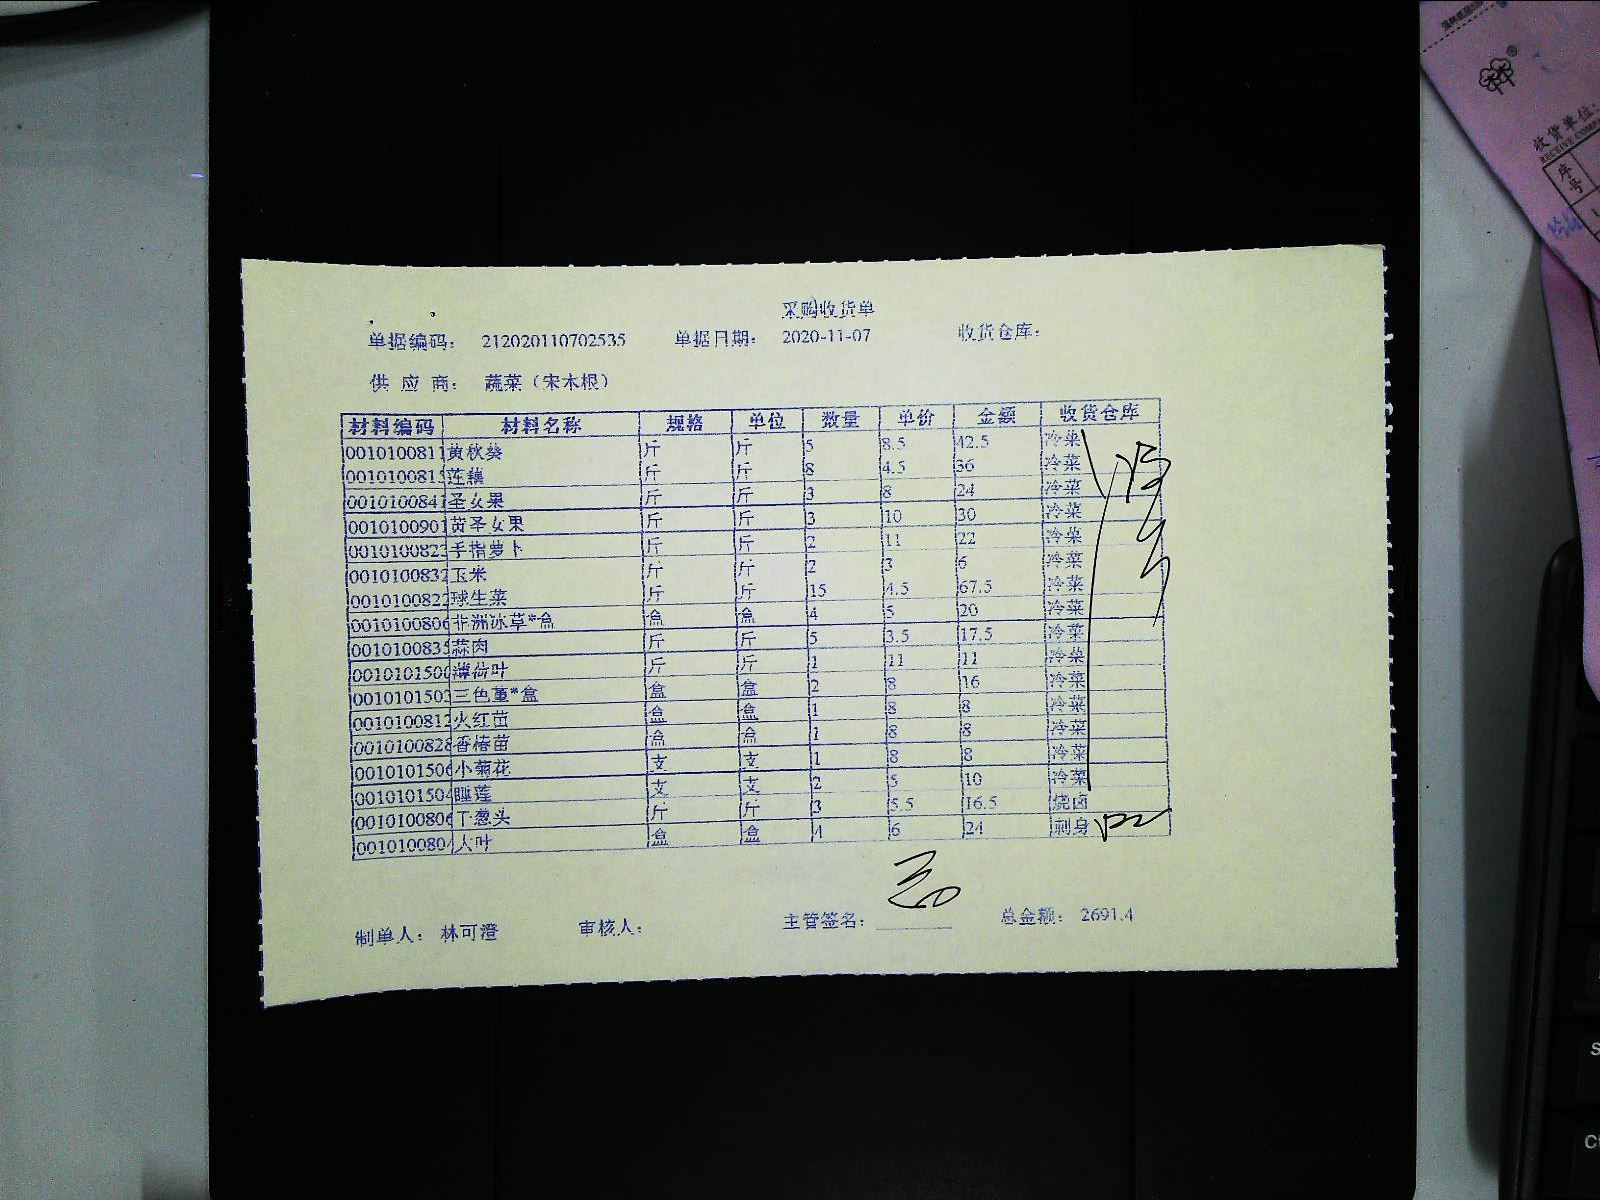 采购收货单
单据编码： 212020110702535 单据日期： 2020-11-07 收货仓库：
供 应 商： 蔬菜（宋木根）
材料编码 材料名称 规格 单位 数量 单价 金额 收货仓库
0010100811 黄秋葵 斤 斤 5 8.5 42.5 冷菜
001010081 莲藕 斤 斤 8 4.5 36 冷菜
001010084 圣女果 斤 斤 3 8 24 冷菜
001010090 黄圣女果 斤 斤 3 10 30 冷菜
001010082 手指萝卜 斤 斤 2 11 22 冷菜
001010083 玉米 斤 斤 2 3 6 冷菜
001010082 球生菜 斤 斤 15 4.5 67.5 冷菜
001010080 非洲冰草*盒 盒 盒 4 5 20 冷菜
001010083 蒜肉 斤 斤 5 3.5 17.5 冷菜
001010150 薄荷叶 斤 斤 1 11 11 冷菜
001010150 三色堇*盒 盒 盒 2 8 16 冷菜
001010081 火红苗 盒 盒 1 8 8 冷菜
001010082 香椿苗 盒 盒 1 8 8 冷菜
001010150 小菊花 支 支 1 8 8 冷菜
001010150 睡莲 支 支 2 5 10 冷菜
001010080 干葱头 斤 斤 3 5.5 16.5 烧卤
001010080 大叶 盒 盒 4 6 24 刺身
制单人： 林可澄 审核人： 主管签名： 总金额： 2691.4
收货单位：
序号